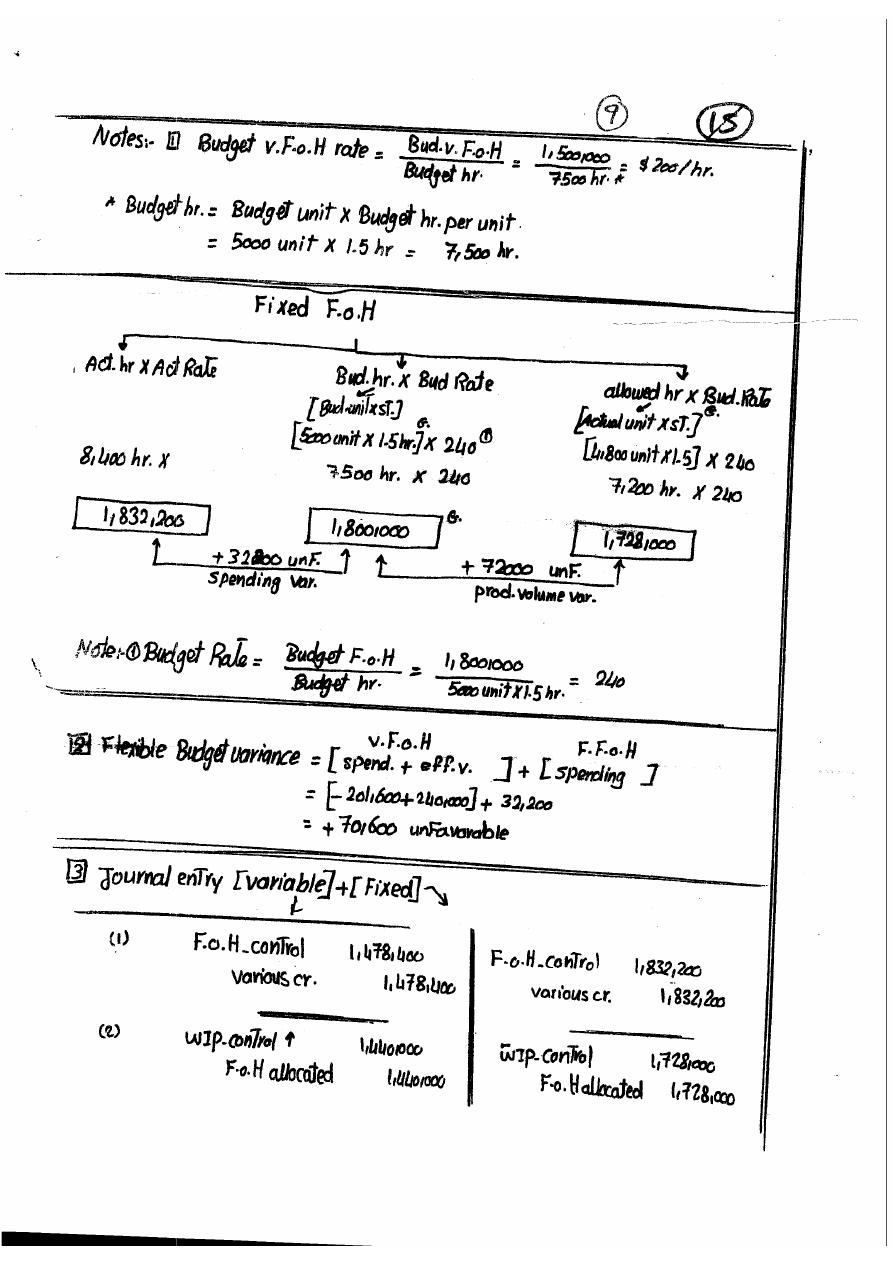 9 15
Notes:- 1 Budget v.F.o.H rate = Bud.v. F.o.H / Budget hr. = 1,500,000 / 7500 hr.* = $200/hr.
* Budget hr. = Budget unit X Budget hr. per unit.
= 5000 unit X 1.5 hr = 7,500 hr.
Fixed F.o.H
Act. hr X Act Rate Bud. hr. X Bud Rate allowed hr X Bud. Rate
[Bud. unit x sT.] [Actual unit x sT.] @.
[5000 unit X 1.5 hr.] X 240 ① [4,800 unit X 1.5] X 240
8,400 hr. X 7500 hr. X 240 7,200 hr. X 240
1,832,200 1,800,000 @. 1,728,000
+ 32200 unF. + 72000 unF.
spending var. prod. volume var.
Note:- ① Budget Rate = Budget F.o.H / Budget hr. = 1,800,000 / 5000 unit X 1.5 hr. = 240
v.F.o.H F.F.o.H
2 Flexible Budget variance = [spend. + eff.v. ] + [spending ]
= [-201,600+240,000] + 32,200
= +70,600 unfavorable
3 Journal enTry [variable] + [Fixed]
(1) F.o.H_conTrol 1,478,400 F.o.H_conTrol 1,832,200
various cr. 1,478,400 various cr. 1,832,200
(2) WIP-conTrol ↑ 1,440,000 WIP-conTrol 1,728,000
F.o.H allocated 1,440,000 F.o.H allocated 1,728,000